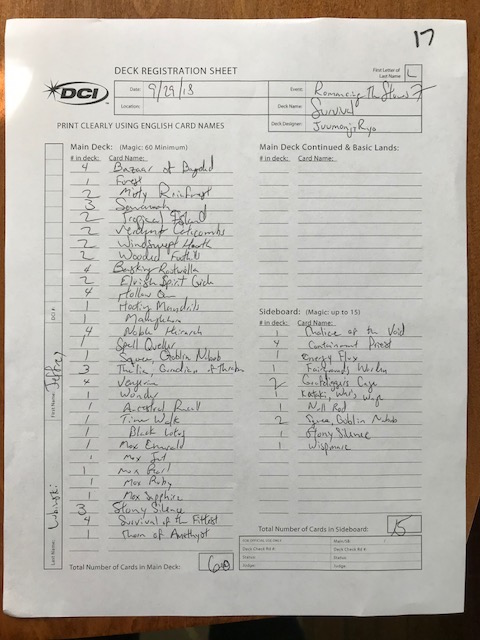 17
DECK REGISTRATION SHEET
First Letter of
Last Name: L
DCI
Date: 9/29/18
Event: Romancing The Stones 7
Location:
Deck Name: Survival
Deck Designer: Juumonji, Ryo
PRINT CLEARLY USING ENGLISH CARD NAMES
Main Deck: (Magic: 60 Minimum)
# in deck: Card Name:
4 Bazaar of Bagdad
1 Forest
2 Misty Rainforest
3 Savannah
2 Tropical Island
2 Verdant Catacombs
2 Windswept Heath
2 Wooded Foothills
4 Basking Rootwalla
2 Elvish Spirit Guide
4 Hollow One
1 Hooting Mandrills
1
4 Noble Hierarch
1 Spell Queller
1 Squee, Goblin Nabob
3 Thalia, Guardian of Thraben
4 Vengevine
1 Wonder
1 Ancestral Recall
1 Time Walk
1 Black Lotus
1 Mox Emerald
1 Mox Jet
1 Mox Pearl
1 Mox Ruby
1 Mox Sapphire
3 Stony Silence
4 Survival of the Fittest
1 Thorn of Amethyst
Total Number of Cards in Main Deck: 60
Main Deck Continued & Basic Lands:
# in deck: Card Name:
Sideboard: (Magic: up to 15)
# in deck: Card Name:
1 Chalice of the Void
4 Containment Priest
1 Energy Flux
1
2 Grafdigger's Cage
1 Kataki, War's Wage
1 Null Rod
2 Squee, Goblin Nabob
1 Stony Silence
1 Wispmare
Total Number of Cards in Sideboard: 15
FOR OFFICIAL USE ONLY
Deck Check Rd #:
Status:
Judge:
Main/SB:
Deck Check Rd #:
Status:
Judge:
DCI #:
First Name: Jeffrey
Last Name: